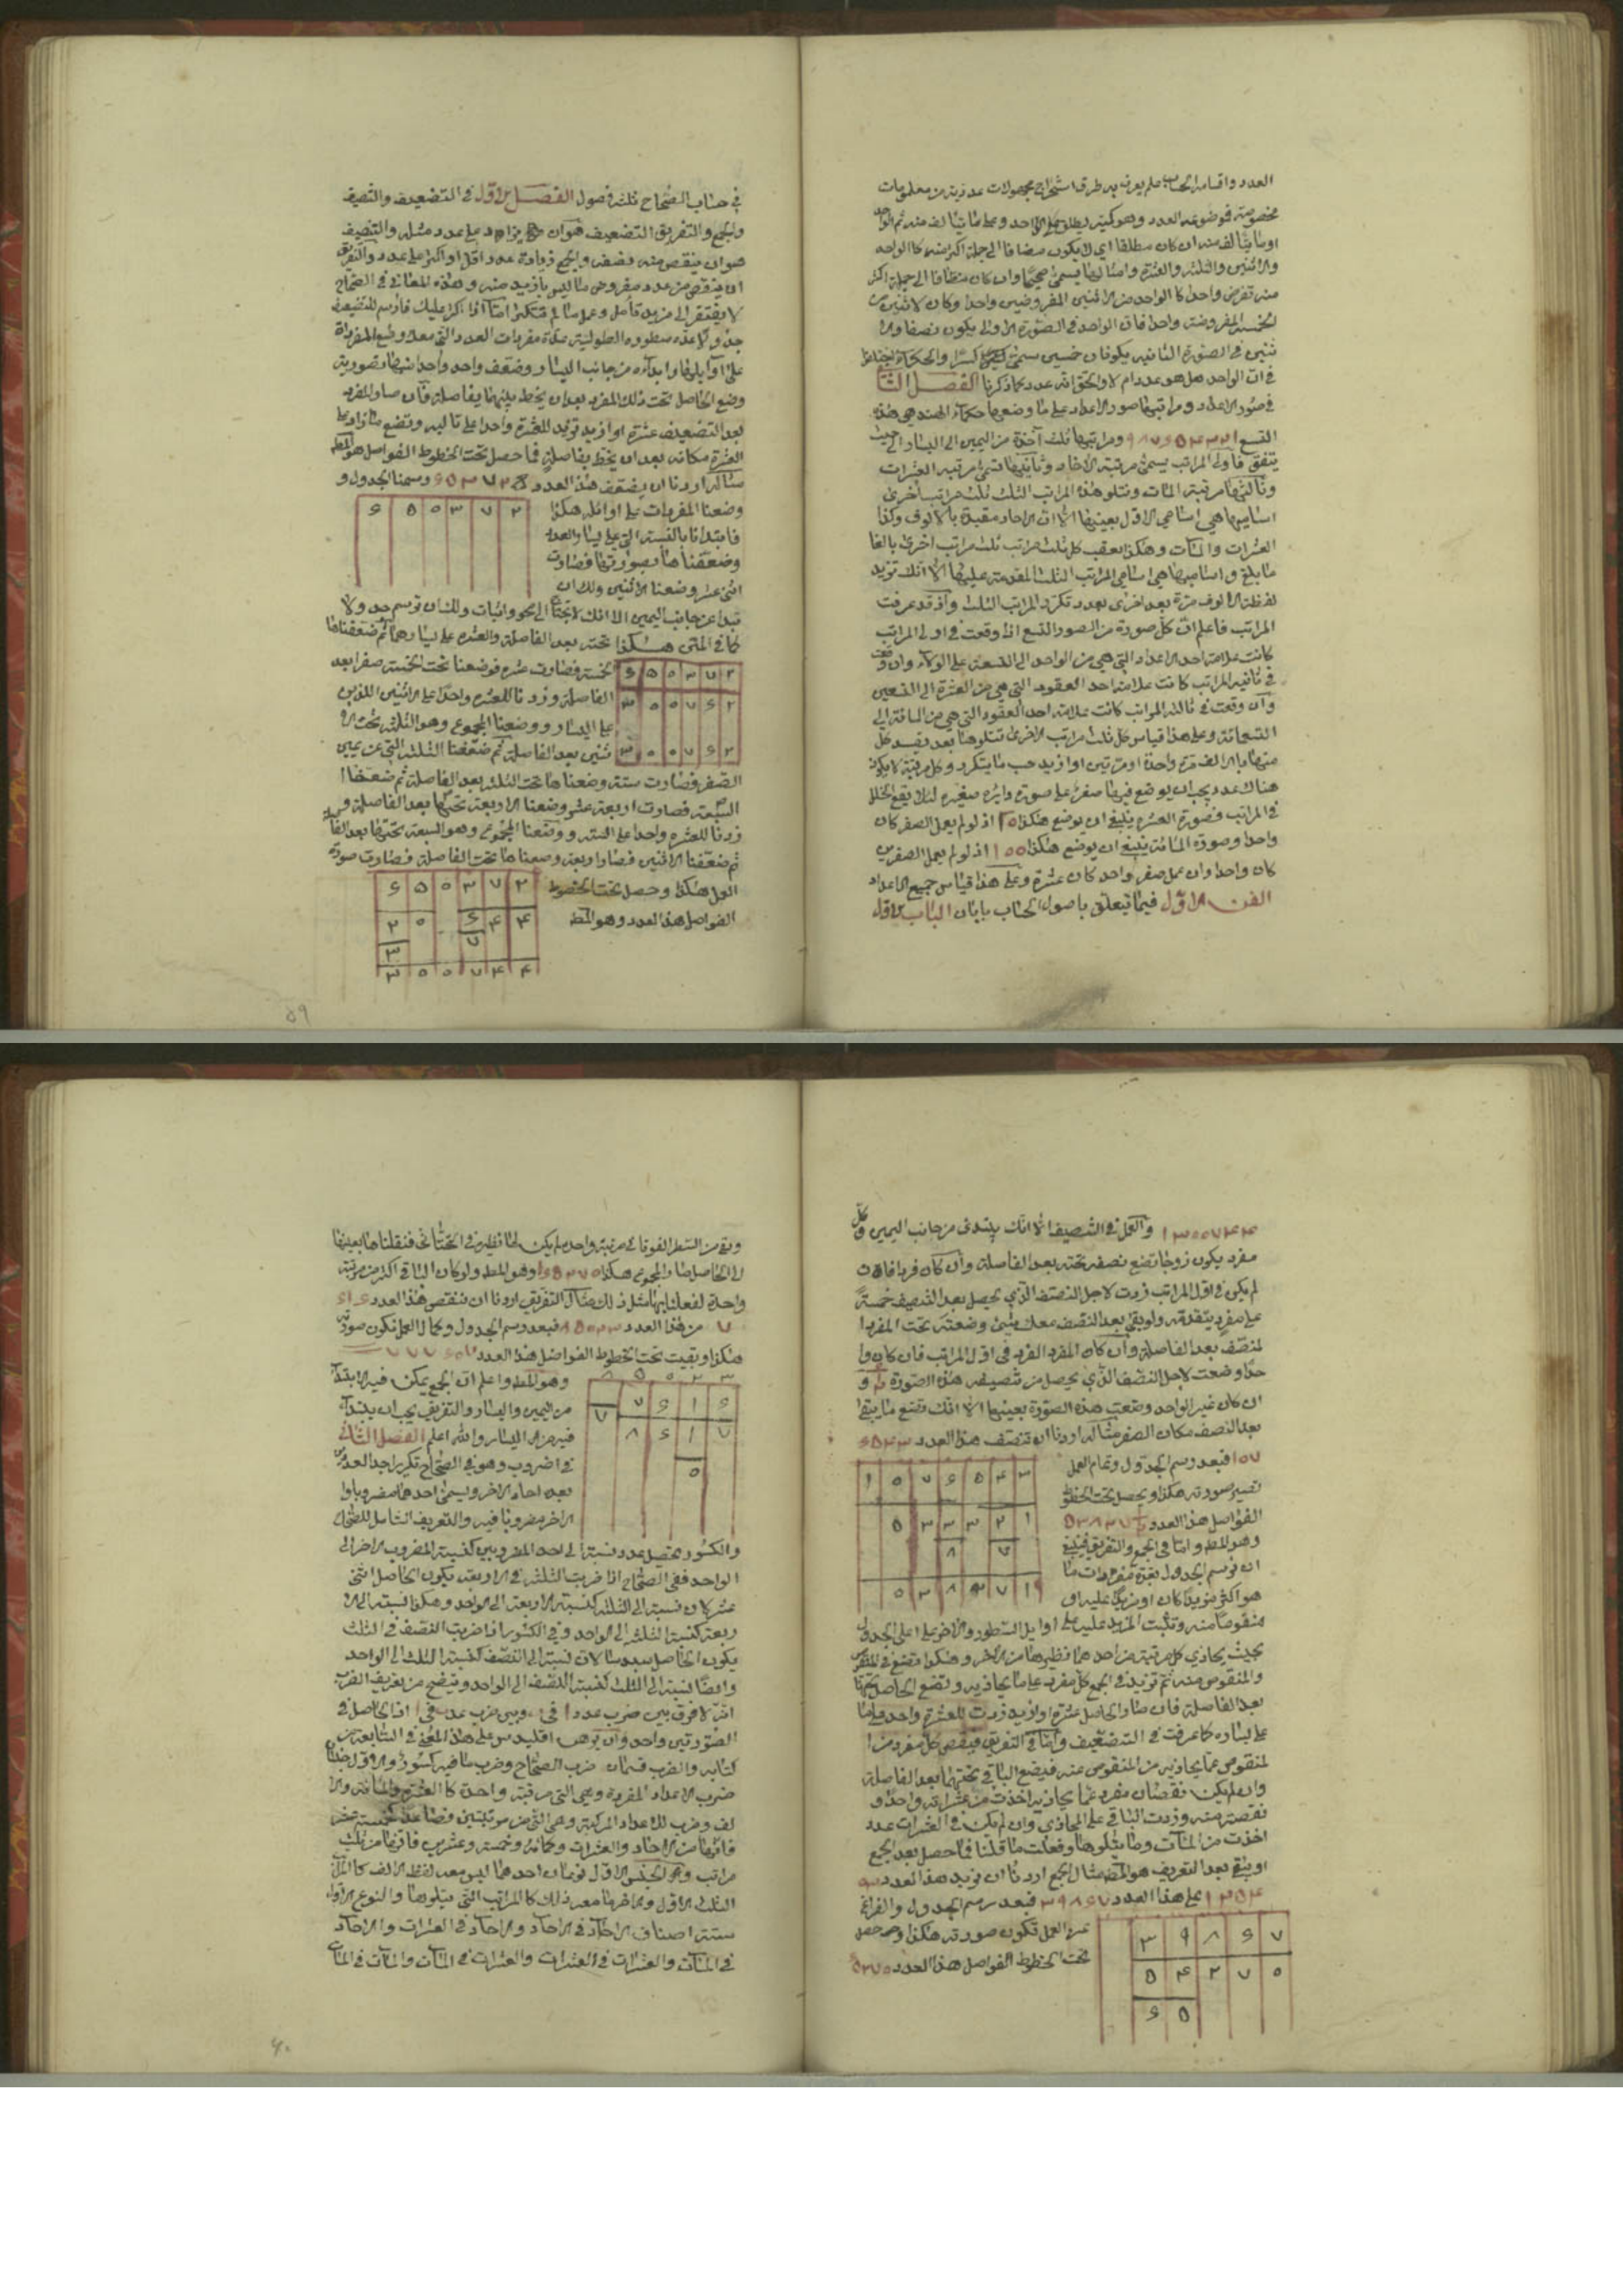 العدد واقسامه الحساب علم يعرف به طرق استخراج مجهولات عددية من معلومات
مخصوصة فموضوعه العدد وهو كمية يطلق على الواحد وعلى ما يتألف منه ثم الواحد
او ما يتألف منه ان كان مطلقا اي لا يكون مضافا الى جملة اكثر منه كالواحد
والاثنين والثلثة والعشرة وامثالها يسمى صحيحا وان كان مضافا الى جملة اكثر
منه تفرض واحدا كالواحد من الاثنين المفروضين واحدا وكالاثنين من
الخمسة المفروضة واحدا فان الواحد في الصورة الاولى يكون نصفا والا
ثنين في الصورة الثانية يكونان خمسين يسمى كسرا والحكماء
في ان الواحد هل هو عدد ام لا والحق انه عدد كما ذكرنا الفصل الثا
في صور الاعداد ومراتبها صور الاعداد على ما وضعها حكماء الهند هي هذه
التسع ومراتبها تلك آخذة من اليمين الى اليسار الى حيث
يتفق فاولى المراتب يسمى مرتبة الآحاد وثانيتها تسمى مرتبة العشرات
وثالثتها مرتبة المئات وتتلو هذه المراتب الثلث ثلث مراتب اخرى
اساميها هي اسامي الاول بعينها الا ان الآحاد مقيدة بالالوف وكذا
العشرات والمئات وهكذا يعقب كل ثلث مراتب ثلث مراتب اخرى بالغا
ما بلغ واساميها هي اسامي المراتب الثلث المقدمة عليها الا انك تزيد
لفظة الالوف مرة بعد اخرى بعدد تكرر المراتب الثلث واذ قد عرفت
المراتب فاعلم ان كل صورة من الصور التسع اذا وقعت في اولى المراتب
كانت علامة احد الاعداد التي هي من الواحد الى التسعة على الولاء وان وقعت
في ثانية المراتب كانت علامة احد العقود التي هي من العشرة الى التسعين
وان وقعت في ثالثة المراتب كانت علامة احد العقود التي هي من المائة الى
التسعمائة وعلى هذا قياس كل ثلث مراتب الاخرى تتلوها بعد تقييد كل
منها بالالف مرة واحدة او مرتين او ازيد حسب ما يتكرر وكل مرتبة لا يكون
هناك عدد يجب ان يوضع فيها صفر على صورة دائرة صغيرة لئلا يقع الخلل
في المراتب فصورة العشرة ينبغي ان يوضع هكذا ١٥ اذ لو لم يعمل الصفر كان
واحدا وصورة المائة ينبغي ان يوضع هكذا ١٥٥ اذ لو لم يعمل الصفرين
كان واحدا وان عمل صفر واحد كان عشرة وعلى هذا قياس جميع الاعداد
الفن الاول فيما يتعلق باصول الحساب بابان الباب الاول
في حساب الصحاح ثلثة فصول الفصل الاول في التضعيف والتنصيف
والجمع والتفريق التضعيف هو ان يزاد على عدد مثله والتنصيف
هو ان ينقص منه نصفه والجمع زيادة عدد اقل او اكثر على عدد والتفريق
ان ينقص من عدد مفروض ما ليس بازيد منه وهذه المعاني في الصحاح
لا يفتقر الى مزيد تأمل وعمل ما لم تتكثر اما اذا كثر عليك فارسم للتضعيف
جدولا عدة سطوره الطولية عدة مفردات العدد الذي معك وضع المفردات
على اوائلها وابدأ من جانب اليسار وضعف واحد واحد منها بصورته
وضع الحاصل تحت ذلك المفرد بعد ان يخط بينهما بفاصلة فان صار المفرد
بعد التضعيف عشرة او ازيد تزيد للعشرة واحدا على تاليه وتضع ما زاد على
العشرة مكانه بعد ان يخط بفاصلة فما حصل تحت الخطوط الفواصل هو المط
مثاله اردنا ان يضعف هذا العدد ورسمنا الجدول و
وضعنا المفردات على اوائله هكذا
فابتدأنا بالستة التي على يسار العدد
وضعفناها بصورتها فصارت
اثنى عشر وضعنا الاثنين ولك ان
تبدأ من جانب اليمين الا انك تحتاج الى محو واثبات ولك ان ترسم جدولا
كما في المتن هكذا تحته بعد الفاصلة والعشرة على يسارها ثم ضعفناها
الخمسة فصارت عشرة فوضعنا تحت الخمسة صفرا بعد
الفاصلة وزدنا للعشرة واحدا على الاثنين اللذين
على اليسار ووضعنا المجموع وهو الثلثة تحت الا
ثنين بعد الفاصلة ثم ضعفنا الثلثة التي عن يمين
الصفر فصارت ستة وضعناها تحت الثلثة بعد الفاصلة ثم ضعفنا
السبعة فصارت اربعة عشر وضعنا الاربعة تحتها بعد الفاصلة و
زدنا للعشرة واحدا على الستة ووضعنا المجموع وهو السبعة تحتها بعد الفاصلة
ثم ضعفنا الاثنين فصارا اربعة وضعناها تحت الفاصلة فصارت صورة
العمل هكذا وحصل تحت الخطوط
الفواصل هذا العدد وهو المط
٥٩
١٣٥٥٧۴۴ والعمل في التنصيف الا انك يبتدئ من جانب اليمين وكل
مفرد يكون زوجا تضع نصفه تحته بعد الفاصلة وان كان فردا فان
لم يكن في اول المراتب زدت لاجل النصف الذي يحصل بعد التنصيف خمسة
على مفرد يتقدمه ولو بقي بعد النصف معك شيئ وضعته تحت المفرد ا
لمنصف بعد الفاصلة وان كان المفرد الفرد في اول المراتب فان كان وا
حدا وضعت لاجل النصف الذي يحصل من تنصيفه هذه الصورة و
ان كان غير الواحد وضعت هذه الصورة بعينها الا انك تضع ما يبقى
بعد النصف مكان الصفر مثاله اردنا ان ننصف هذا العدد
١٥٧ فبعد رسم الجدول وتمام العمل
تصير صورته هكذا ويحصل تحت الخطوط
الفواصل هذا العدد
وهو المط واما في الجمع والتفريق فينبغي
ان ترسم الجدول بعدة مفردات ما
هو اكثر مزيدا كان او مزيدا عليه او
منقوصا منه وتثبت المزيد عليه على اوايل السطور والاخر على اعلى الجدول
بحيث يحاذي كل مرتبة من احدهما نظيرها من الاخر وهكذا تضع في المنقوص
والمنقوص منه ثم تزيد في الجمع كل مفرد على ما يحاذيه وتضع الحاصل تحتها
بعد الفاصلة فان صار الحاصل عشرة او ازيد زدت للعشرة واحدا على ما
على يساره كما عرفت في التضعيف واما في التفريق فينقص كل مفرد من ا
لمنقوص عما يحاذيه من المنقوص منه فيضع الباقي تحتهما بعد الفاصلة
وان لم يمكن نقصان مفرد عما يحاذيه اخذت من عشراته واحدا و
نقصته منه وزدت الباقي على المحاذي وان لم يكن في العشرات عدد
اخذت من المئات وما يتلوها وفعلت ما قلنا فما حصل بعد الجمع
او بقي بعد التفريق هو المط مثال الجمع اردنا ان نزيد هذا العدد
على هذا العدد فبعد رسم الجدول والفراغ
عن العمل تكون صورته هكذا وحصل
تحت الخطوط الفواصل هذا العدد
وبقي من السطر الفوقاني مرتبة واحدة لم يكن لها نظير في التحتاني فنقلناها بعينها
الى الحاصل فصار المجموع هكذا وهو المط ولو كان الباقي اكثر من مرتبة
واحدة لفعلنا بها مثل ذلك مثال التفريق اردنا ان ننقص هذا العدد
٧ من هذا العدد فبعد رسم الجدول وكمال العمل تكون صورته
هكذا وبقيت تحت الخطوط الفواصل هذا العدد
وهو المط واعلم ان الجمع يمكن فيه الابتداء
من اليمين واليسار والتفريق يجب ان يبتدأ
فيه من اليسار والله اعلم الفصل الثاني
في الضروب وهو في الصحاح تكرير احد العددين
بعدد احاد الاخر ويسمى احدهما مضروبا وا
لاخر مضروبا فيه والتعريف الشامل للصحاح
والكسور تحصيل عدد نسبته الى احد المضروبين كنسبة المضروب الاخر الى
الواحد ففي الصحاح اذا ضربت الثلثة في الاربعة يكون الحاصل اثنى
عشر كان نسبته الى الثلثة كنسبة الاربعة الى الواحد وهكذا نسبته الى الا
ربعة كنسبة الثلثة الى الواحد وفي الكسور اذا ضربت النصف في الثلث
يكون الحاصل سدسا لان نسبته الى النصف كنسبة الثلث الى الواحد
وايضا نسبته الى الثلث كنسبة النصف الى الواحد ويتضح من تعريف الضرب
انه لا فرق بين ضرب عدد في وبين ضرب عدد في اذ الحاصل في
الصورتين واحد وان برهن اقليدس على هذا المعنى في السابعة من
كتابه والضرب قسمان ضرب الصحاح وضرب ما فيه كسور والاول
ضرب الاعداد المفردة وهي التي من مرتبة واحدة كالعشرة والمائة والا
لف وضرب الاعداد المركبة وهي التي من مرتبتين فصاعدا كخمسة عشر
فانها من الآحاد والعشرات وكمائة وخمسة وعشرين فانها من ثلث
مراتب وهو الجنس الاول نوعان احدهما ليس معه لفظ الالف كالمراتب
الثلث الاول والاخر ما معه ذلك كالمراتب التي يتلوها والنوع الاول
ستة اصناف الآحاد في الآحاد والآحاد في العشرات والآحاد
في المئات والعشرات في العشرات والعشرات في المئات والمئات في المئات
۶٠